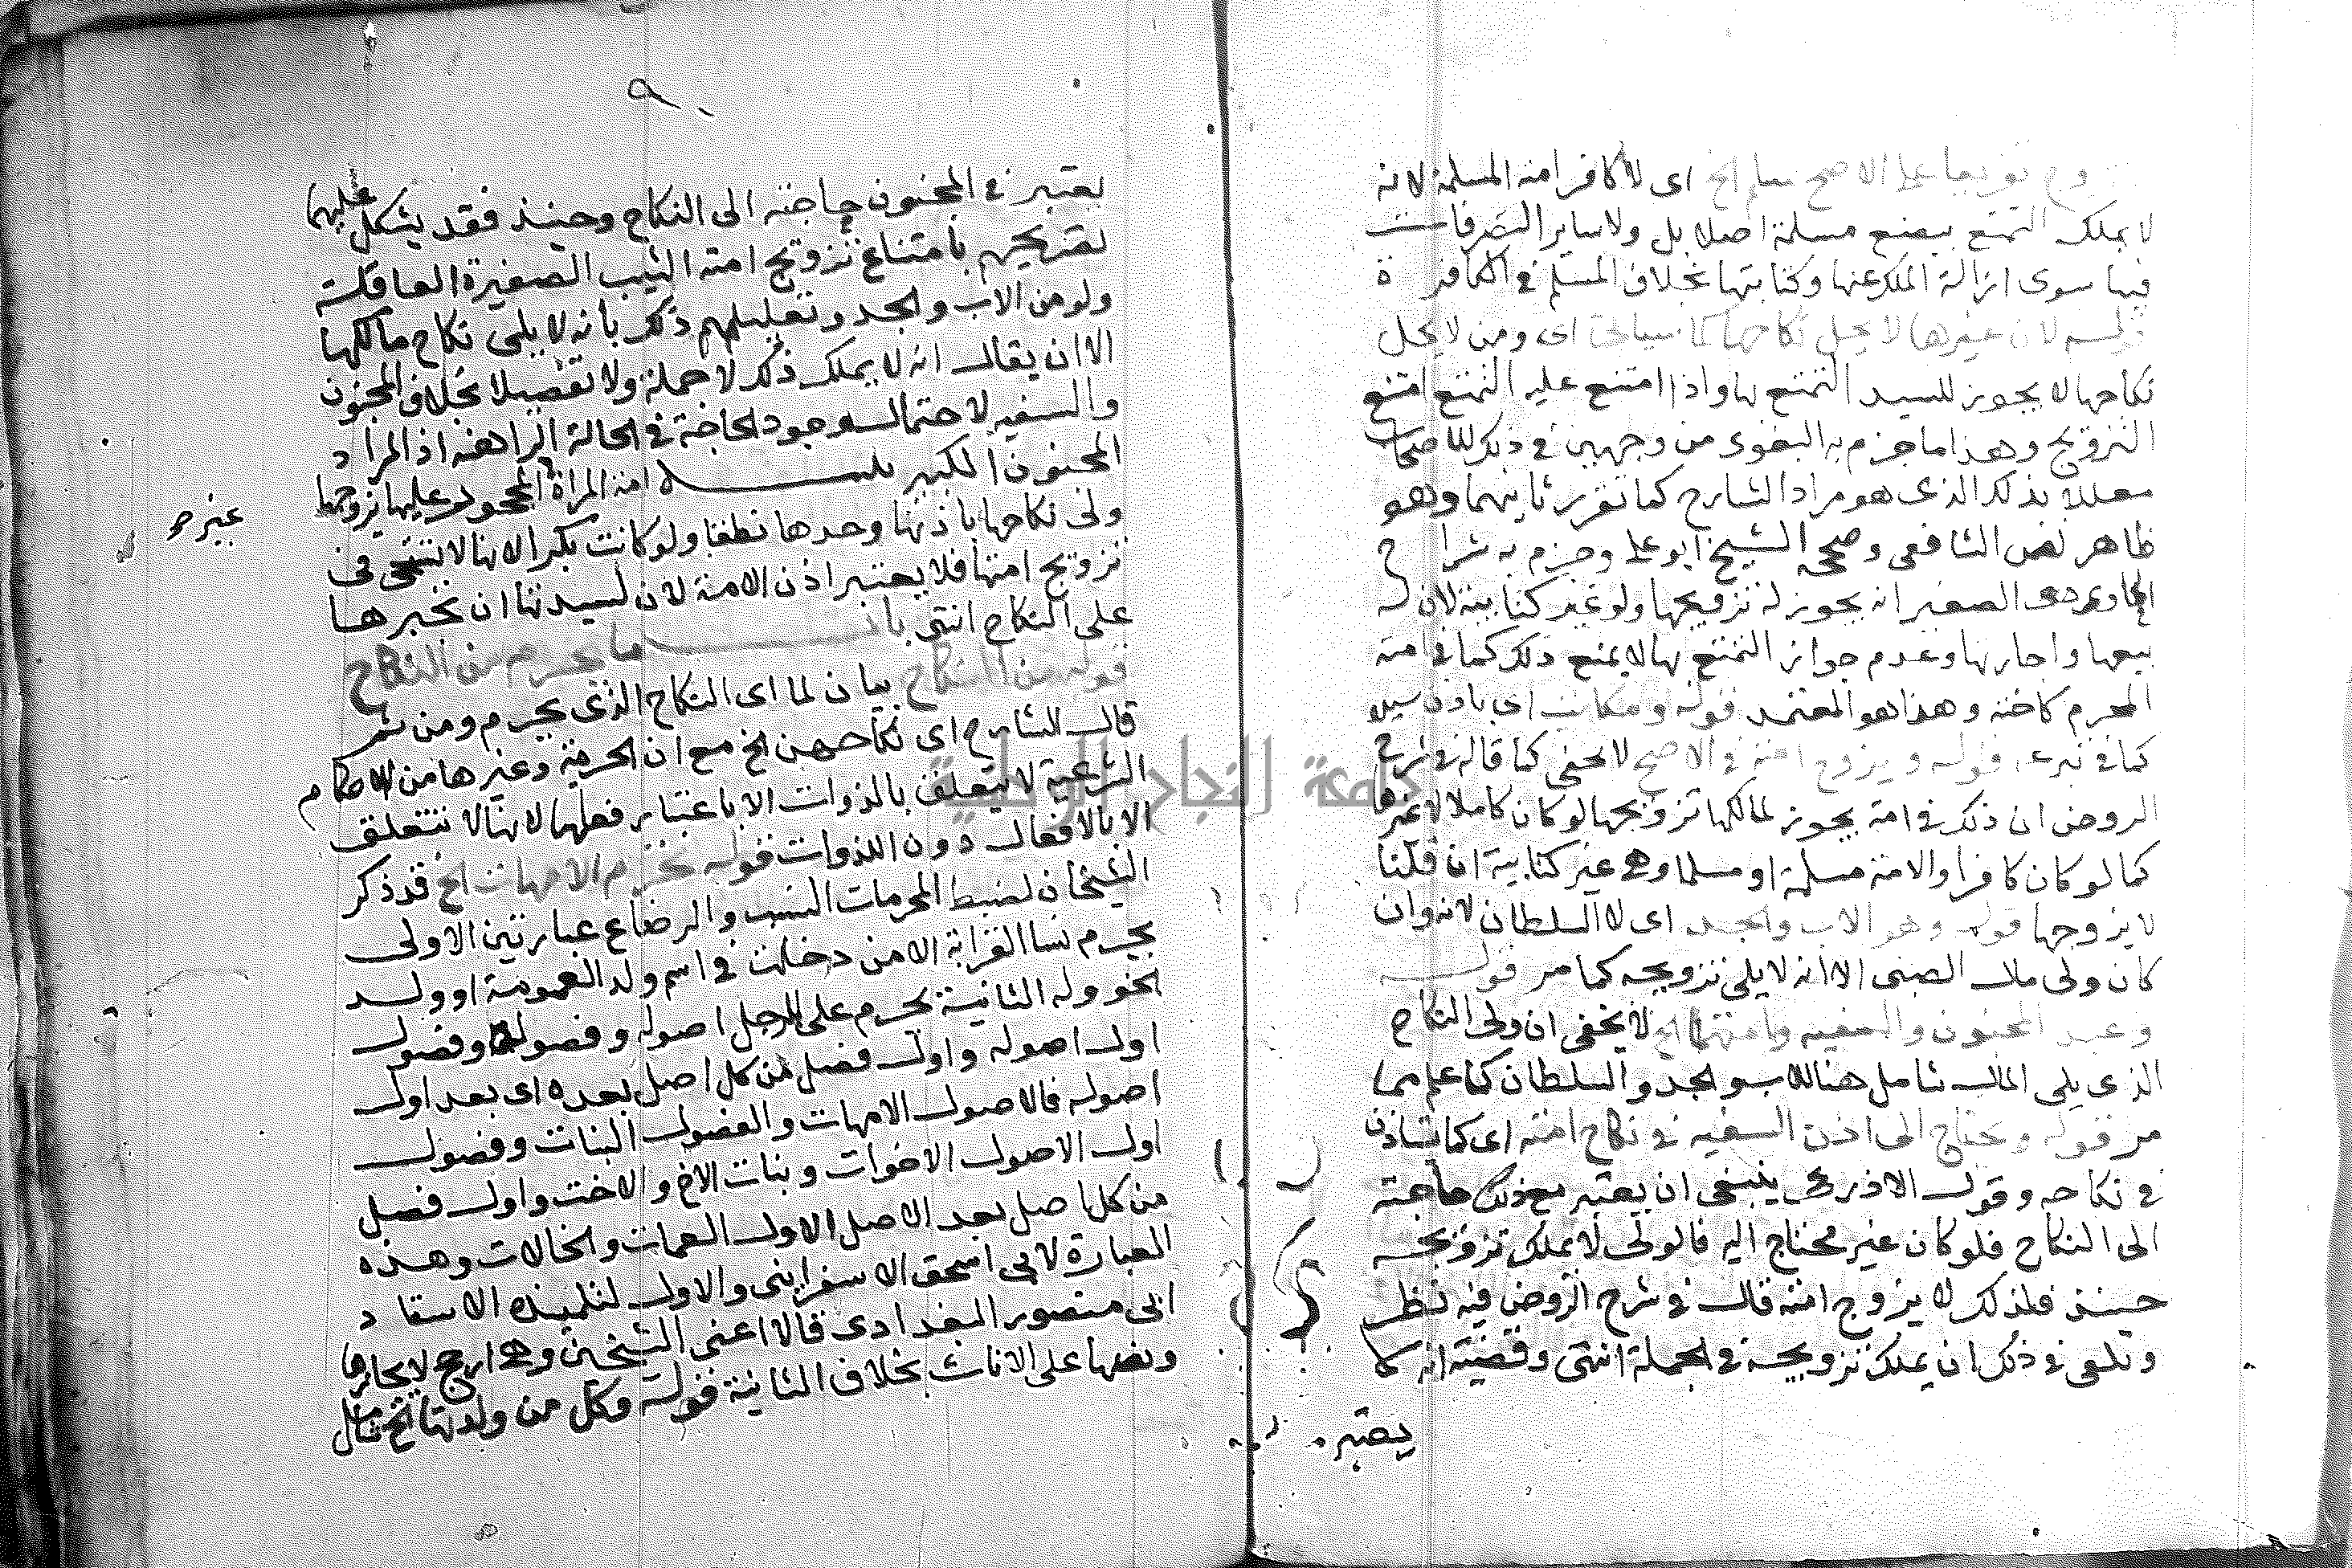 ويزوج تفريعا على الاصح مسلم الخ اى لا كافر امته المسلمة لانه
لا يملك التمتع ببضع مسلمة اصلا بل ولا ساير التصرفات
فيها سوى ازالة الملك عنها وكتابتها بخلاف المسلم فى الكافرة
قوله لان غيرها لا يحل نكاحها كما سياتى اى ومن لا يحل
نكاحها لا يجوز للسيد التمتع بها واذا امتنع عليه التمتع امتنع
التزويج وهذا ما جزم به البغوى من وجهين فى ذلك للاصحاب
معللا بذلك الذى هو مراد الشارح كما تقرر ثانيهما وهو
ظاهر نص الشافعى وصححه الشيخ ابو على وجزم به شراح
الحاوى الصغير انه يجوز له تزويجها ولو غير كتابية لان له
بيعها واجارتها وعدم جواز التمتع بها لا يمنع ذلك كما فى امته
المحرم كاخته وهذا هو المعتمد قوله ومكاتب اى باذن سيده
كما فى تبرعه قوله ويزوج امته فى الاصح لا يخفى كما قاله فى شرح
الروض ان ذلك فى امة يجوز لمالكها تزويجها لو كان كاملا لا غيرها
كما لو كان كافرا والامة مسلمة او مسلما وهى غير كتابية ان قلنا
لا يزوجها قوله وهو الاب والجد اى لا السلطان لانه وان
كان ولى مال الصبى الا انه لا يلى تزويجه كما مر قوله
وعبد المجنون والسفيه وامتهما الخ لا يخفى ان ولى النكاح
الذى يلى المال شامل هنا للاب والجد والسلطان كما علم مما
مر قوله ويحتاج الى اذن السفيه فى نكاح امته اى كما يستاذن
فى نكاحه وقول الاذرعى ينبغى ان يعتبر مع ذلك حاجته
الى النكاح فلو كان غير محتاج اليه فالولى لا يملك تزويجه
حينئذ فلذلك لا يزوج امته قال فى شرح الروض فيه نظر
ويكفى فى ذلك ان يملك تزويجه فى الجملة انتهى وقضيته انه كما
يعتبر
٩٠
يعتبر فى المجنون حاجته الى النكاح وحينئذ فقد يشكل عليهما
تصريحهم بامتناع تزويج امته الثيب الصغيرة العاقلة
ولو من الاب والجد وتعليلهم ذلك بانه لا يلى نكاح مالكها
الا ان يقال انه لا يملك ذلك لا جملة ولا تفصيلا بخلاف المجنون
والسفيه لاحتمال وجود الحاجة فى الحالة الراهنة اذ المراد
المجنون الكبير امة المراة المحجور عليها يزوجها
غير
ولى نكاحها باذنها وحدها نطقا ولو كانت بكرا لانها لا تستحى فى
تزويج امتها فلا يعتبر اذن الامة لان لسيدتها ان تجبرها
على النكاح انتهى باب ما يحرم من النكاح
قوله من النكاح بيان لما اى النكاح الذى يحرم ومن ثم
قال الشارح اى نكاحهن الخ مع ان الحرمة وغيرها من الاحكام
الشرعية لا يتعلق بالذوات الا باعتبار فعلها لانها لا تتعلق
الا بالافعال دون الذوات قوله تحرم الامهات الخ قد ذكر
الشيخان لضبط المحرمات النسب والرضاع عبارتين الاولى
يحرم نسا القرابة الا من دخلت فى اسم ولد العمومة او ولد
الخوولة الثانية يحرم على الرجل اصوله وفصوله وفصول
اول اصوله واول فصل من كل اصل بعده اى بعد اول
اصوله فالاصول الامهات والفصول البنات وفصول
اول الاصول الاخوات وبنات الاخ والاخت واول فصل
من كل اصل بعد الاصل الاول العمات والخالات وهذه
العبارة لابى اسحق الاسفراينى والاولى لتلميذه الاستاد
ابى منصور البغدادى قالا اعنى الشيخين وهى ارجح لايجازها
ونصها على الاناث بخلاف الثانية قوله وكل من ولدتها الخ